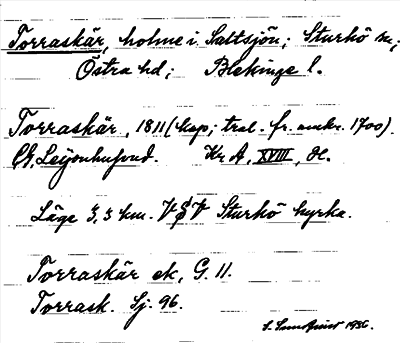 Torraskär, holme i Saltsjön; Sturkö sn;
Östra hd; Blekinge l.
Torraskär, 1811 (kop; tral. fr. omkr. 1700).
Ch. Leijonhufvud. Kr A, XVIII, H.
Läge 3,5 km. VSV Sturkö kyrka.
Torraskär ek, G. 11.
Torrask. Sj. 96.
S. Sundquist 1936.